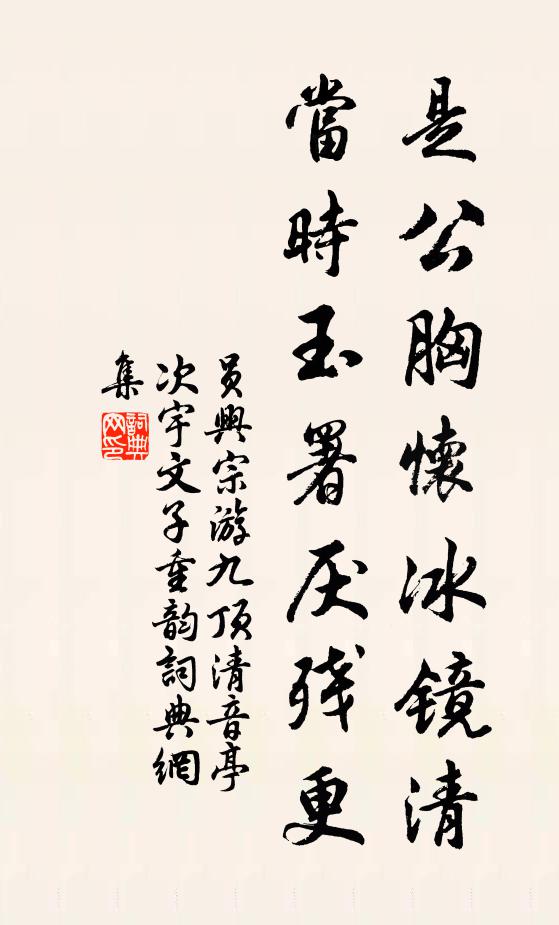 是公胸懷冰鏡清
當時玉署厌残更
员興宗游九顶清音亭
次宇文子重韵詞典網
集
詞典网印